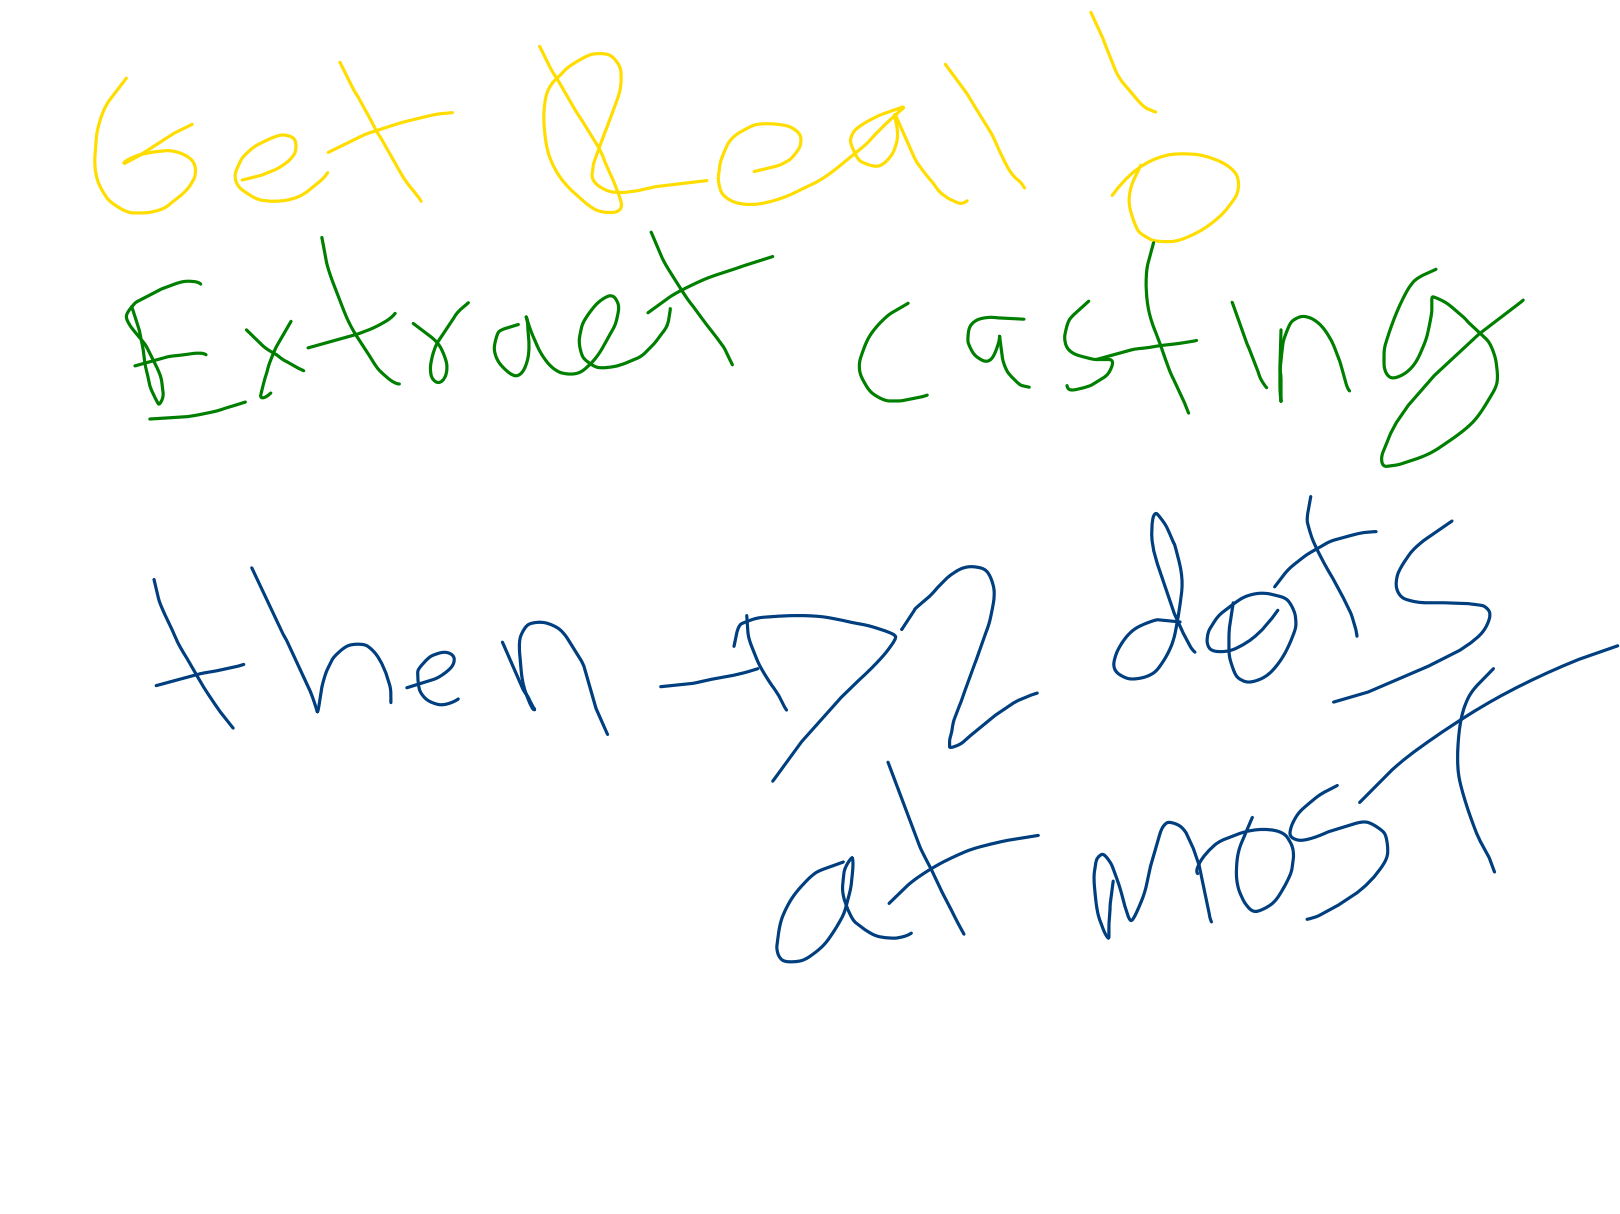 Get Real!
Extract casting
then → 2 dots
at most